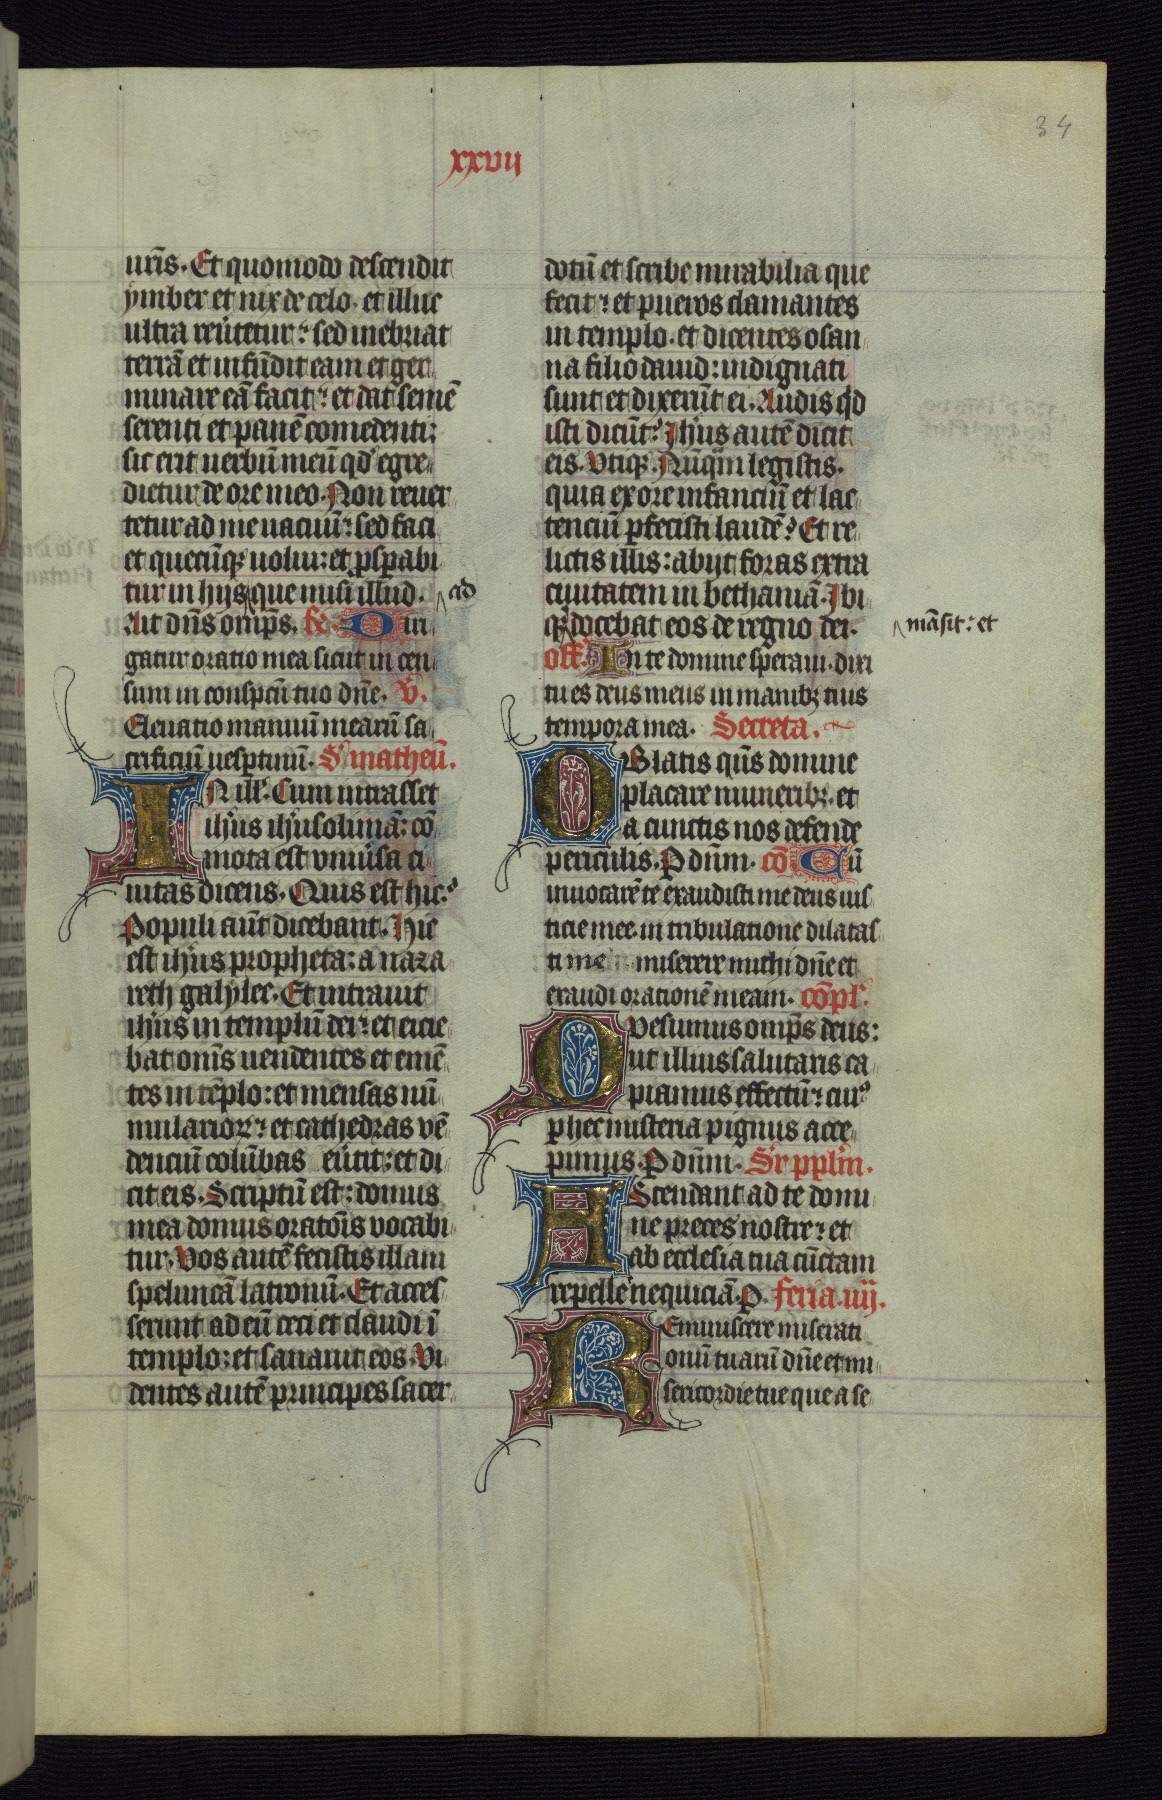 34
xxvij
uris. Et quomodo descendit
ymber et nix de celo. et illuc
ultra reūtetur: sed inebriat
terrā et infūdit eam et ger
minare eā facit: et dat semē
serenti et panē comedenti:
sic erit uerbū meū qd egre
dietur de ore meo. Non reuer
tetur ad me vacuū: sed faci
et quecūq; uolui: et psp̄abi
tur in hijs que misi illud.
ad
Ait dn̄s omp̄s. R̄ Diri
gatur oratio mea sicut in cen
sum in conspectu tuo dn̄e. V̄.
Eleuatio manuū mearū sa
crificiū uesptinū. S' matheū.
IN ill'. Cum intrasset
ih'us ih'usolimā: cō
mota est vniūsa ci
uitas dicens. Quis est hic?
Populi aūt dicebant. Hic
est ih'us propheta: a naza
reth galylee. Et intrauit
ih'us in templū dei: et eicie
bat om̄is uendentes et emē
tes in tēplo: et mensas nū
mularioꝝ: et cathedras vē
denciū colūbas eūtit: et di
cit eis. Scriptū est: domus
mea domus orat̄ois vocabi
tur. Vos autē fecistis illam
speluncā latronū. Et acces
serunt ad eū ceci et claudi ī
templo: et sanauit eos. Vi
dentes autē principes sacer
dotū et scribe mirabilia que
fecit: et pueros clamantes
in templo. et dicentes osan
na filio dauid: indignati
sunt et dixerūt ei. Audis qd
isti dicūt? Ih'us autē dicit
eis. Vtiq;. Nūqm̄ legistis.
quia ex ore infanciū et lac
tenciū pfecisti laudē? Et re
lictis illis: abijt foras extra
ciuitatem in bethaniā. Ibi
q; docebat eos de regno dei.
māsit: et
off. In te domine speraui. dixi
tu es deus meus in manib; tuis
tempora mea. Secreta.
OBlatis qs̄ domine
placare munerib;. et
a cunctis nos defende
periculis. P dn̄m. cō Cū
inuocarē te exaudisti me deus ius
ticie mee. in tribulatione dilatas
ti me miserere michi dn̄e et
exaudi orationē meam. cōpl'.
QVesumus omp̄s deus:
ut illius salutaris ca
piamus effectū: cui9
p hec misteria pignus acce
pimus. P dn̄m. Sr pplm̄.
AScendant ad te domi
ne preces nostre: et
ab ecclesia tua cūctam
repelle nequiciā. P. feria.iiij.
REminiscere miserati
onū tuarū dn̄e et mi
sericordie tue que a se